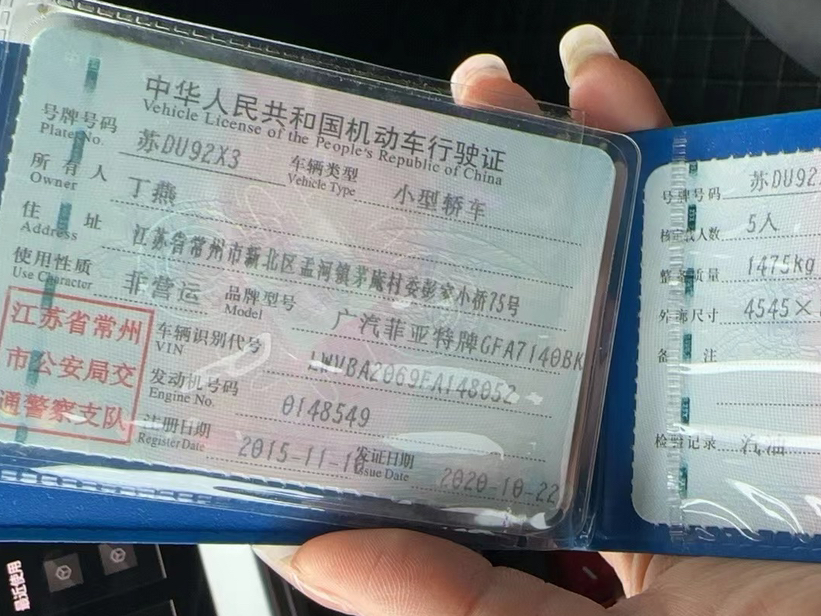 中华人民共和国机动车行驶证
Vehicle License of the People's Republic of China
号牌号码 苏DU92X3 车辆类型 小型轿车
Plate No. Vehicle Type
所有人 丁燕
Owner
住址 江苏省常州市新北区孟河镇茅庵村委彭家小桥75号
Address
使用性质 非营运 品牌型号 广汽菲亚特牌GFA7140BK
Use Character Model
车辆识别代号 LWVBA2069FA148052
VIN
发动机号码 0148549
Engine No.
注册日期 2015-11-10 发证日期 2020-10-22
Register Date Issue Date
江苏省常州
市公安局交
通警察支队
号牌号码 苏DU92
核定载人数 5人
整备质量 1475kg
外廓尺寸 4545×
备注
检验记录 汽油
最近使用